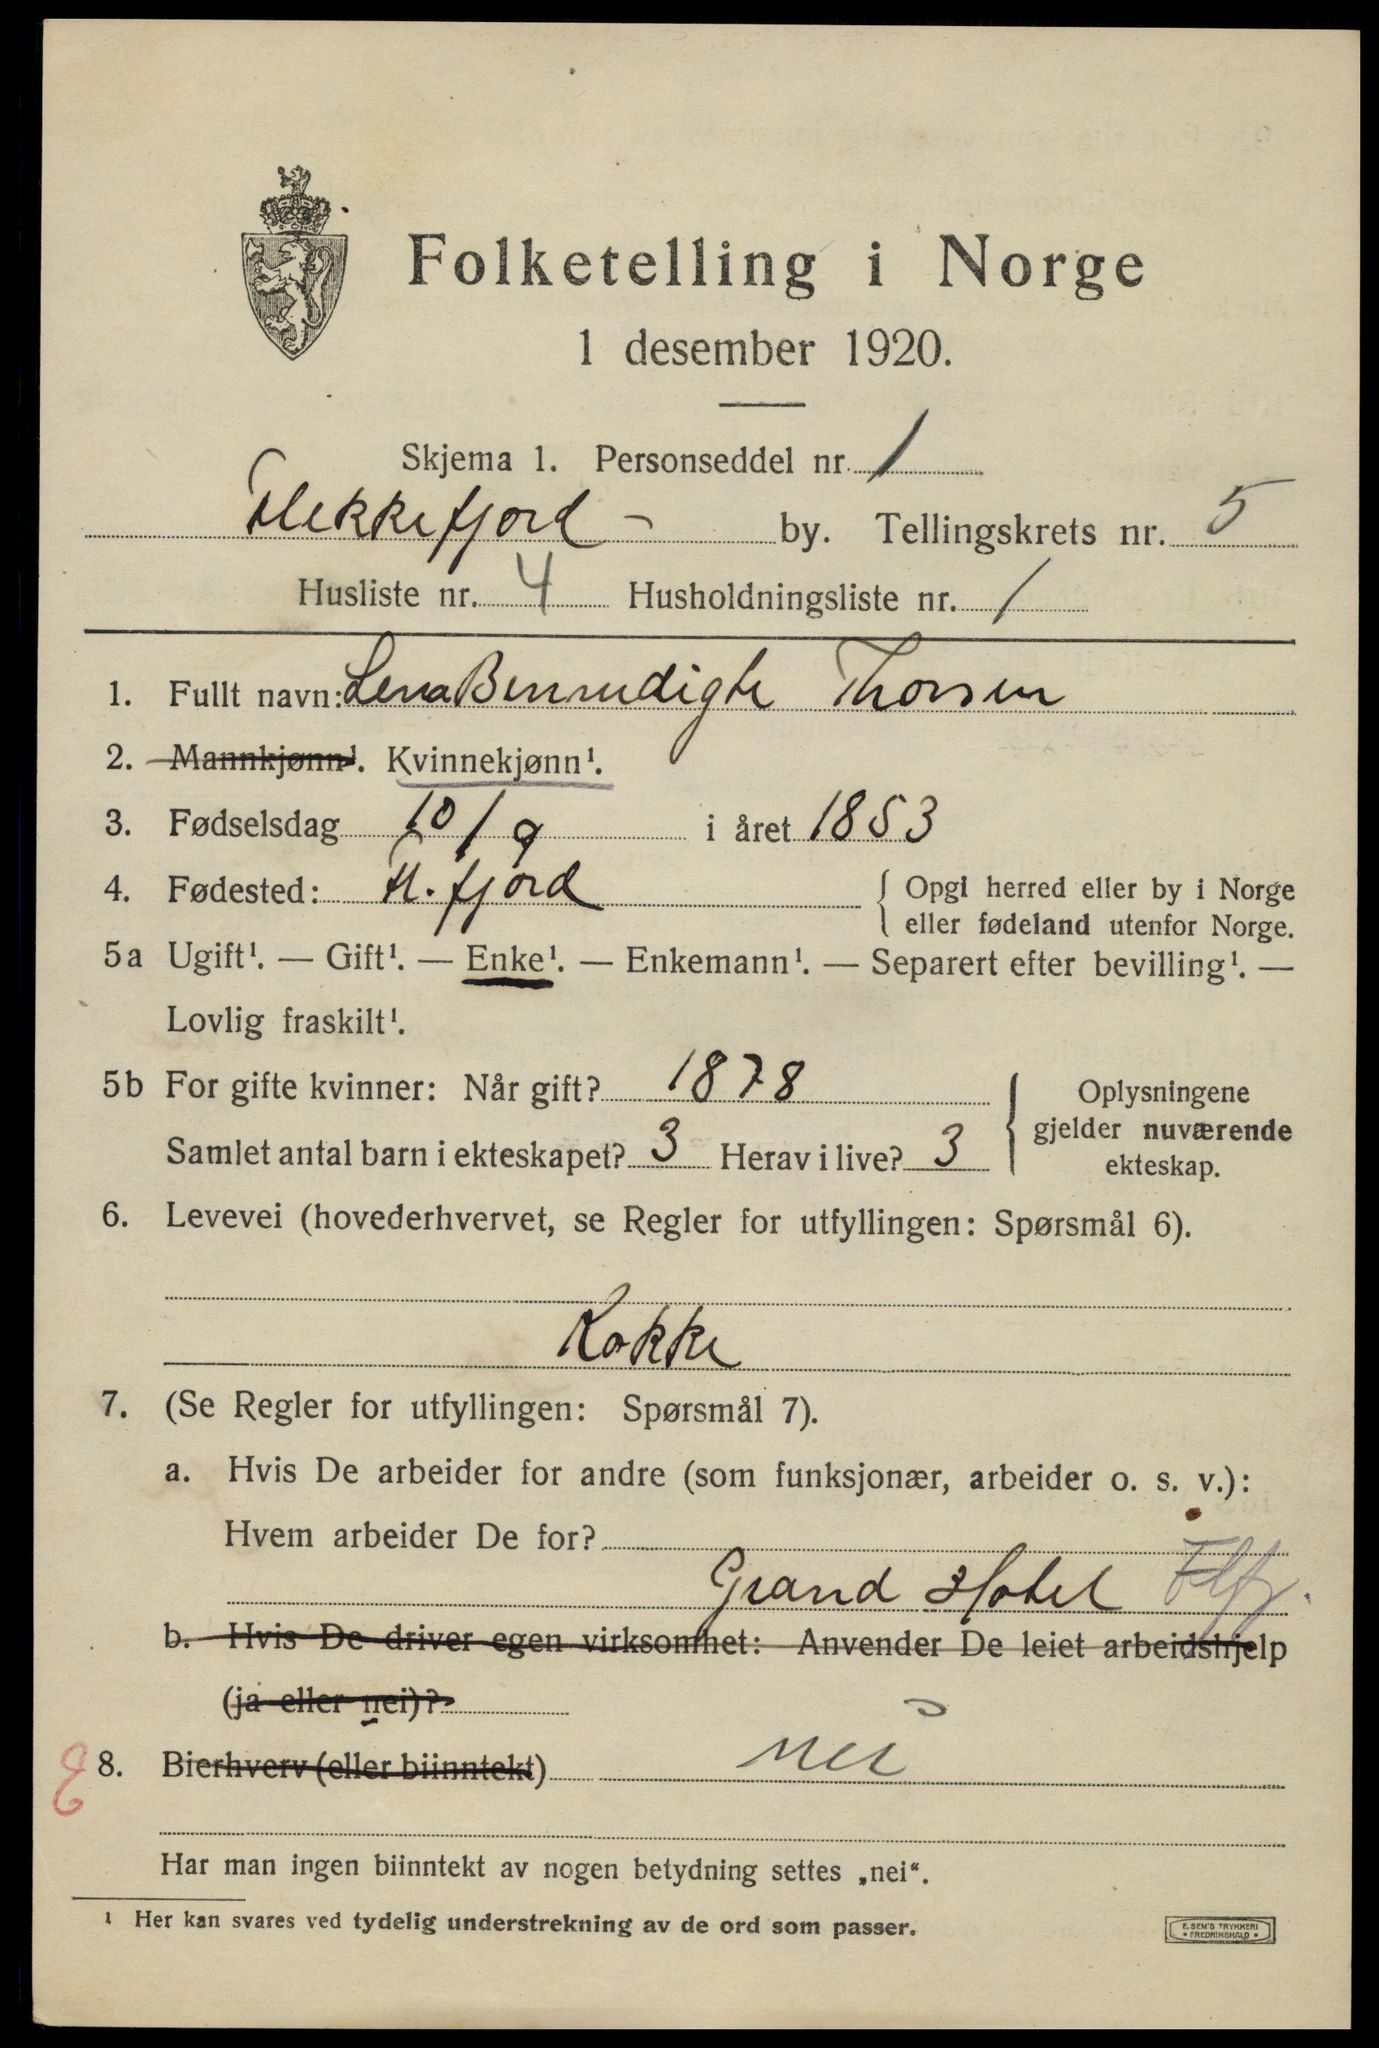 Folketelling i Norge
1 desember 1920.
Skjema 1. Personseddel nr. 1
Flekkefjord - by. Tellingskrets nr. 5
Husliste nr. 4 Husholdningsliste nr. 1
1. Fullt navn: Lena Bennedigte Thorsen
2. Mannkjønn¹. Kvinnekjønn¹.
3. Fødselsdag 10/9 i året 1853
4. Fødested: Fl.fjord { Opgi herred eller by i Norge
eller fødeland utenfor Norge.
5a Ugift¹. — Gift¹. — Enke¹. — Enkemann¹. — Separert efter bevilling¹. —
Lovlig fraskilt¹.
5b For gifte kvinner: Når gift? 1878
Samlet antal barn i ekteskapet? 3 Herav i live? 3
{ Oplysningene
gjelder nuværende
ekteskap.
6. Levevei (hovederhvervet, se Regler for utfyllingen: Spørsmål 6).
Kokke
7. (Se Regler for utfyllingen: Spørsmål 7).
a. Hvis De arbeider for andre (som funksjonær, arbeider o. s. v.):
Hvem arbeider De for?
Grand Hotel Flfj.
b. Hvis De driver egen virksomhet: Anvender De leiet arbeidshjelp
(ja eller nei)?
8. Bierhverv (eller biinntekt) nei
Har man ingen biinntekt av nogen betydning settes „nei“.
¹ Her kan svares ved tydelig understrekning av de ord som passer.
E. SEM'S TRYKKERI
• FREDRIKSHALD •